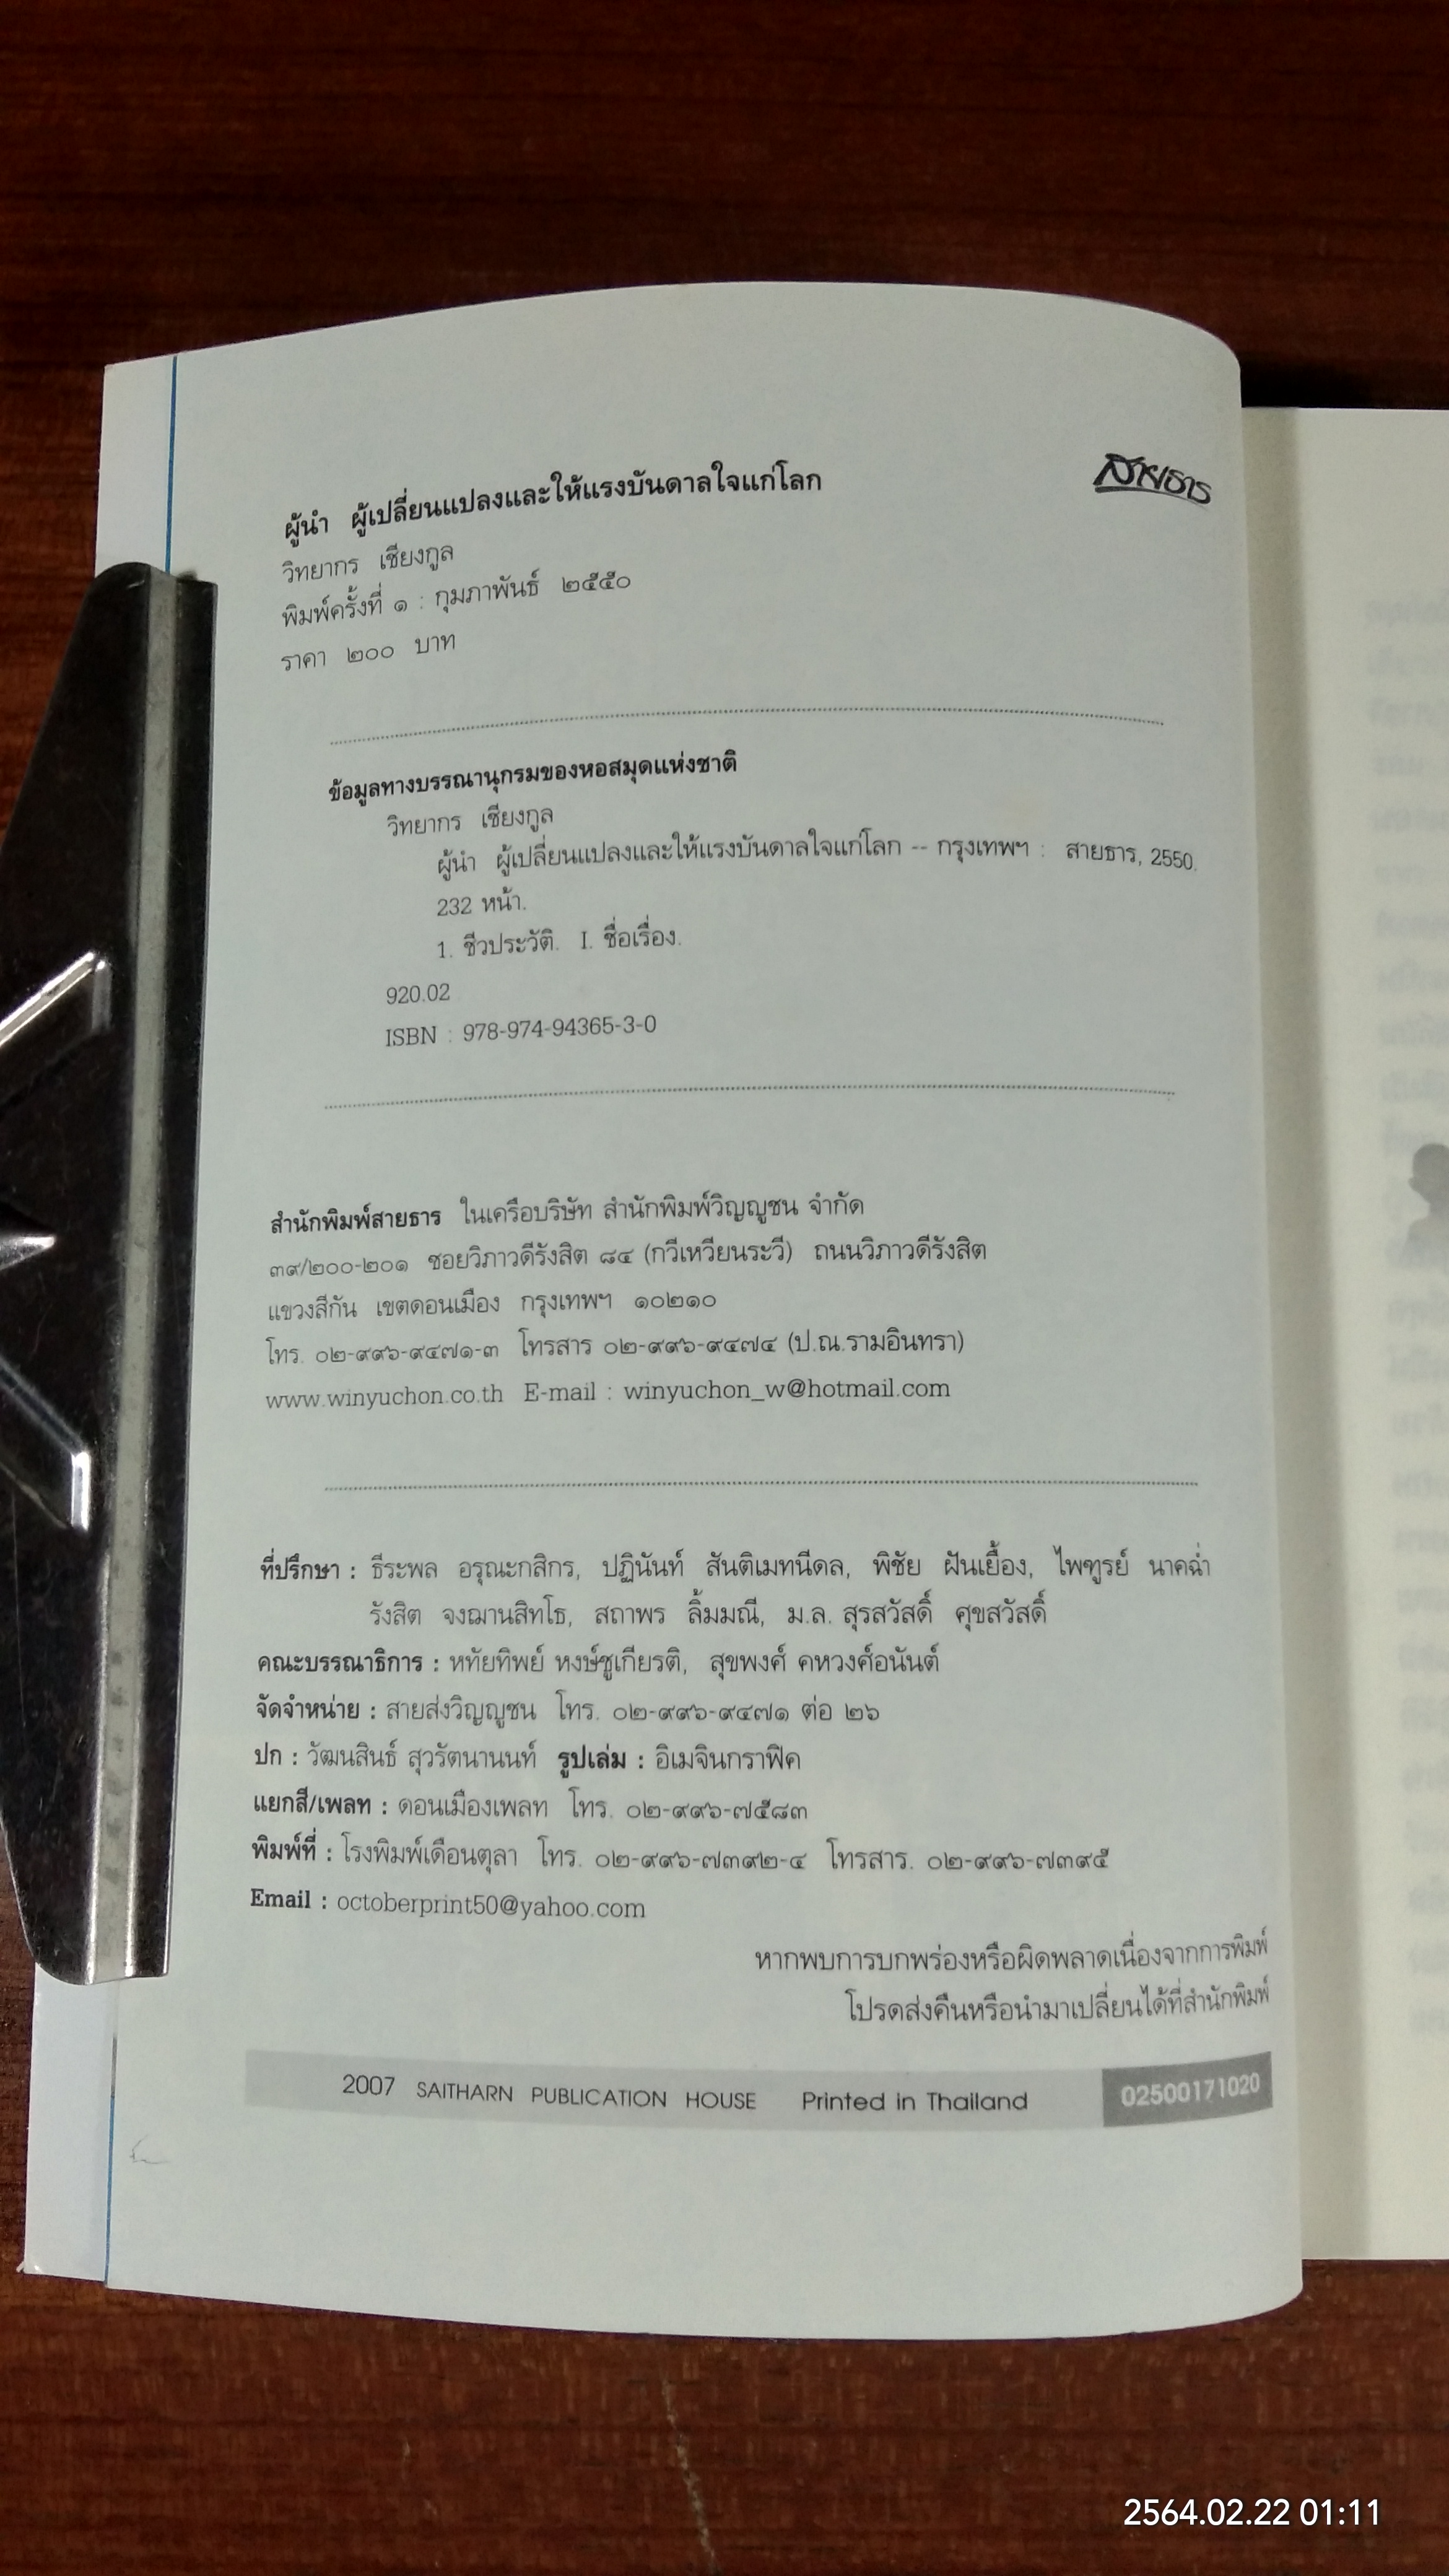 สายธาร
ผู้นำ ผู้เปลี่ยนแปลงและให้แรงบันดาลใจแก่โลก
วิทยากร เชียงกูล
พิมพ์ครั้งที่ ๑ : กุมภาพันธ์ ๒๕๕๐
ราคา ๒๐๐ บาท
ข้อมูลทางบรรณานุกรมของหอสมุดแห่งชาติ
วิทยากร เชียงกูล
ผู้นำ ผู้เปลี่ยนแปลงและให้แรงบันดาลใจแก่โลก -- กรุงเทพฯ : สายธาร, 2550.
232 หน้า.
1. ชีวประวัติ. I. ชื่อเรื่อง.
920.02
ISBN : 978-974-94365-3-0
สำนักพิมพ์สายธาร ในเครือบริษัท สำนักพิมพ์วิญญูชน จำกัด
๓๙/๒๐๐-๒๐๑ ซอยวิภาวดีรังสิต ๘๔ (กวีเหวียนระวี) ถนนวิภาวดีรังสิต
แขวงสีกัน เขตดอนเมือง กรุงเทพฯ ๑๐๒๑๐
โทร. ๐๒-๙๙๖-๙๔๗๑-๓ โทรสาร ๐๒-๙๙๖-๙๔๗๔ (ป.ณ.รามอินทรา)
www.winyuchon.co.th E-mail : winyuchon_w@hotmail.com
ที่ปรึกษา : ธีระพล อรุณะกสิกร, ปฏินันท์ สันติเมทนีดล, พิชัย ฝันเยื้อง, ไพฑูรย์ นาคฉ่ำ
รังสิต จงฌานสิทโธ, สถาพร ลิ้มมณี, ม.ล. สุรสวัสดิ์ ศุขสวัสดิ์
คณะบรรณาธิการ : หทัยทิพย์ หงษ์ชูเกียรติ, สุขพงศ์ คหวงศ์อนันต์
จัดจำหน่าย : สายส่งวิญญูชน โทร. ๐๒-๙๙๖-๙๔๗๑ ต่อ ๒๖
ปก : วัฒนสินธ์ สุวรัตนานนท์ รูปเล่ม : อิเมจินกราฟิค
แยกสี/เพลท : ดอนเมืองเพลท โทร. ๐๒-๙๙๖-๗๕๘๓
พิมพ์ที่ : โรงพิมพ์เดือนตุลา โทร. ๐๒-๙๙๖-๗๓๙๒-๔ โทรสาร. ๐๒-๙๙๖-๗๓๙๕
Email : octoberprint50@yahoo.com
หากพบการบกพร่องหรือผิดพลาดเนื่องจากการพิมพ์
โปรดส่งคืนหรือนำมาเปลี่ยนได้ที่สำนักพิมพ์
2007 SAITHARN PUBLICATION HOUSE Printed in Thailand 02500171020
2564.02.22 01:11